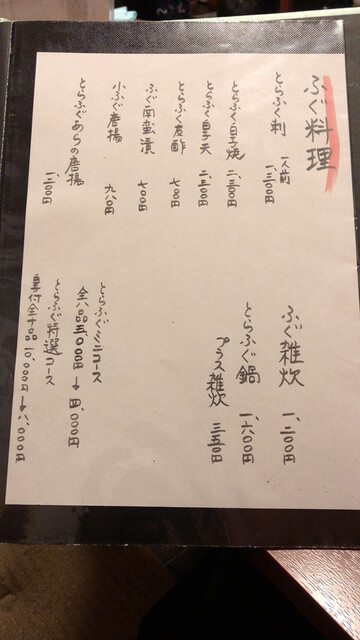 ふぐ料理
とらふぐ刺 一人前 一、三〇〇円
とらふぐ白子焼 二、三〇〇円
とらふぐ白子天 二、三〇〇円
とらふぐ皮酢 七〇〇円
ふぐ南蛮漬 七〇〇円
小ふぐ唐揚 九八〇円
とらふぐあらの唐揚 一、二〇〇円
ふぐ雑炊 一、二〇〇円
とらふぐ鍋 一、六〇〇円
プラス雑炊 三五〇円
とらふぐミニコース
全八品 五、〇〇〇円→四、〇〇〇円
とらふぐ特選コース
白子付全十品 一〇、〇〇〇円→八、〇〇〇円